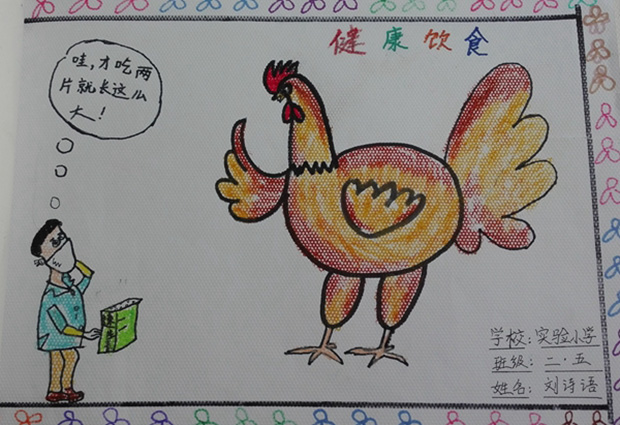 健康饮食
哇,才吃两
片就长这么
大!
学校:实验小学
班级:二·五
姓名:刘诗语